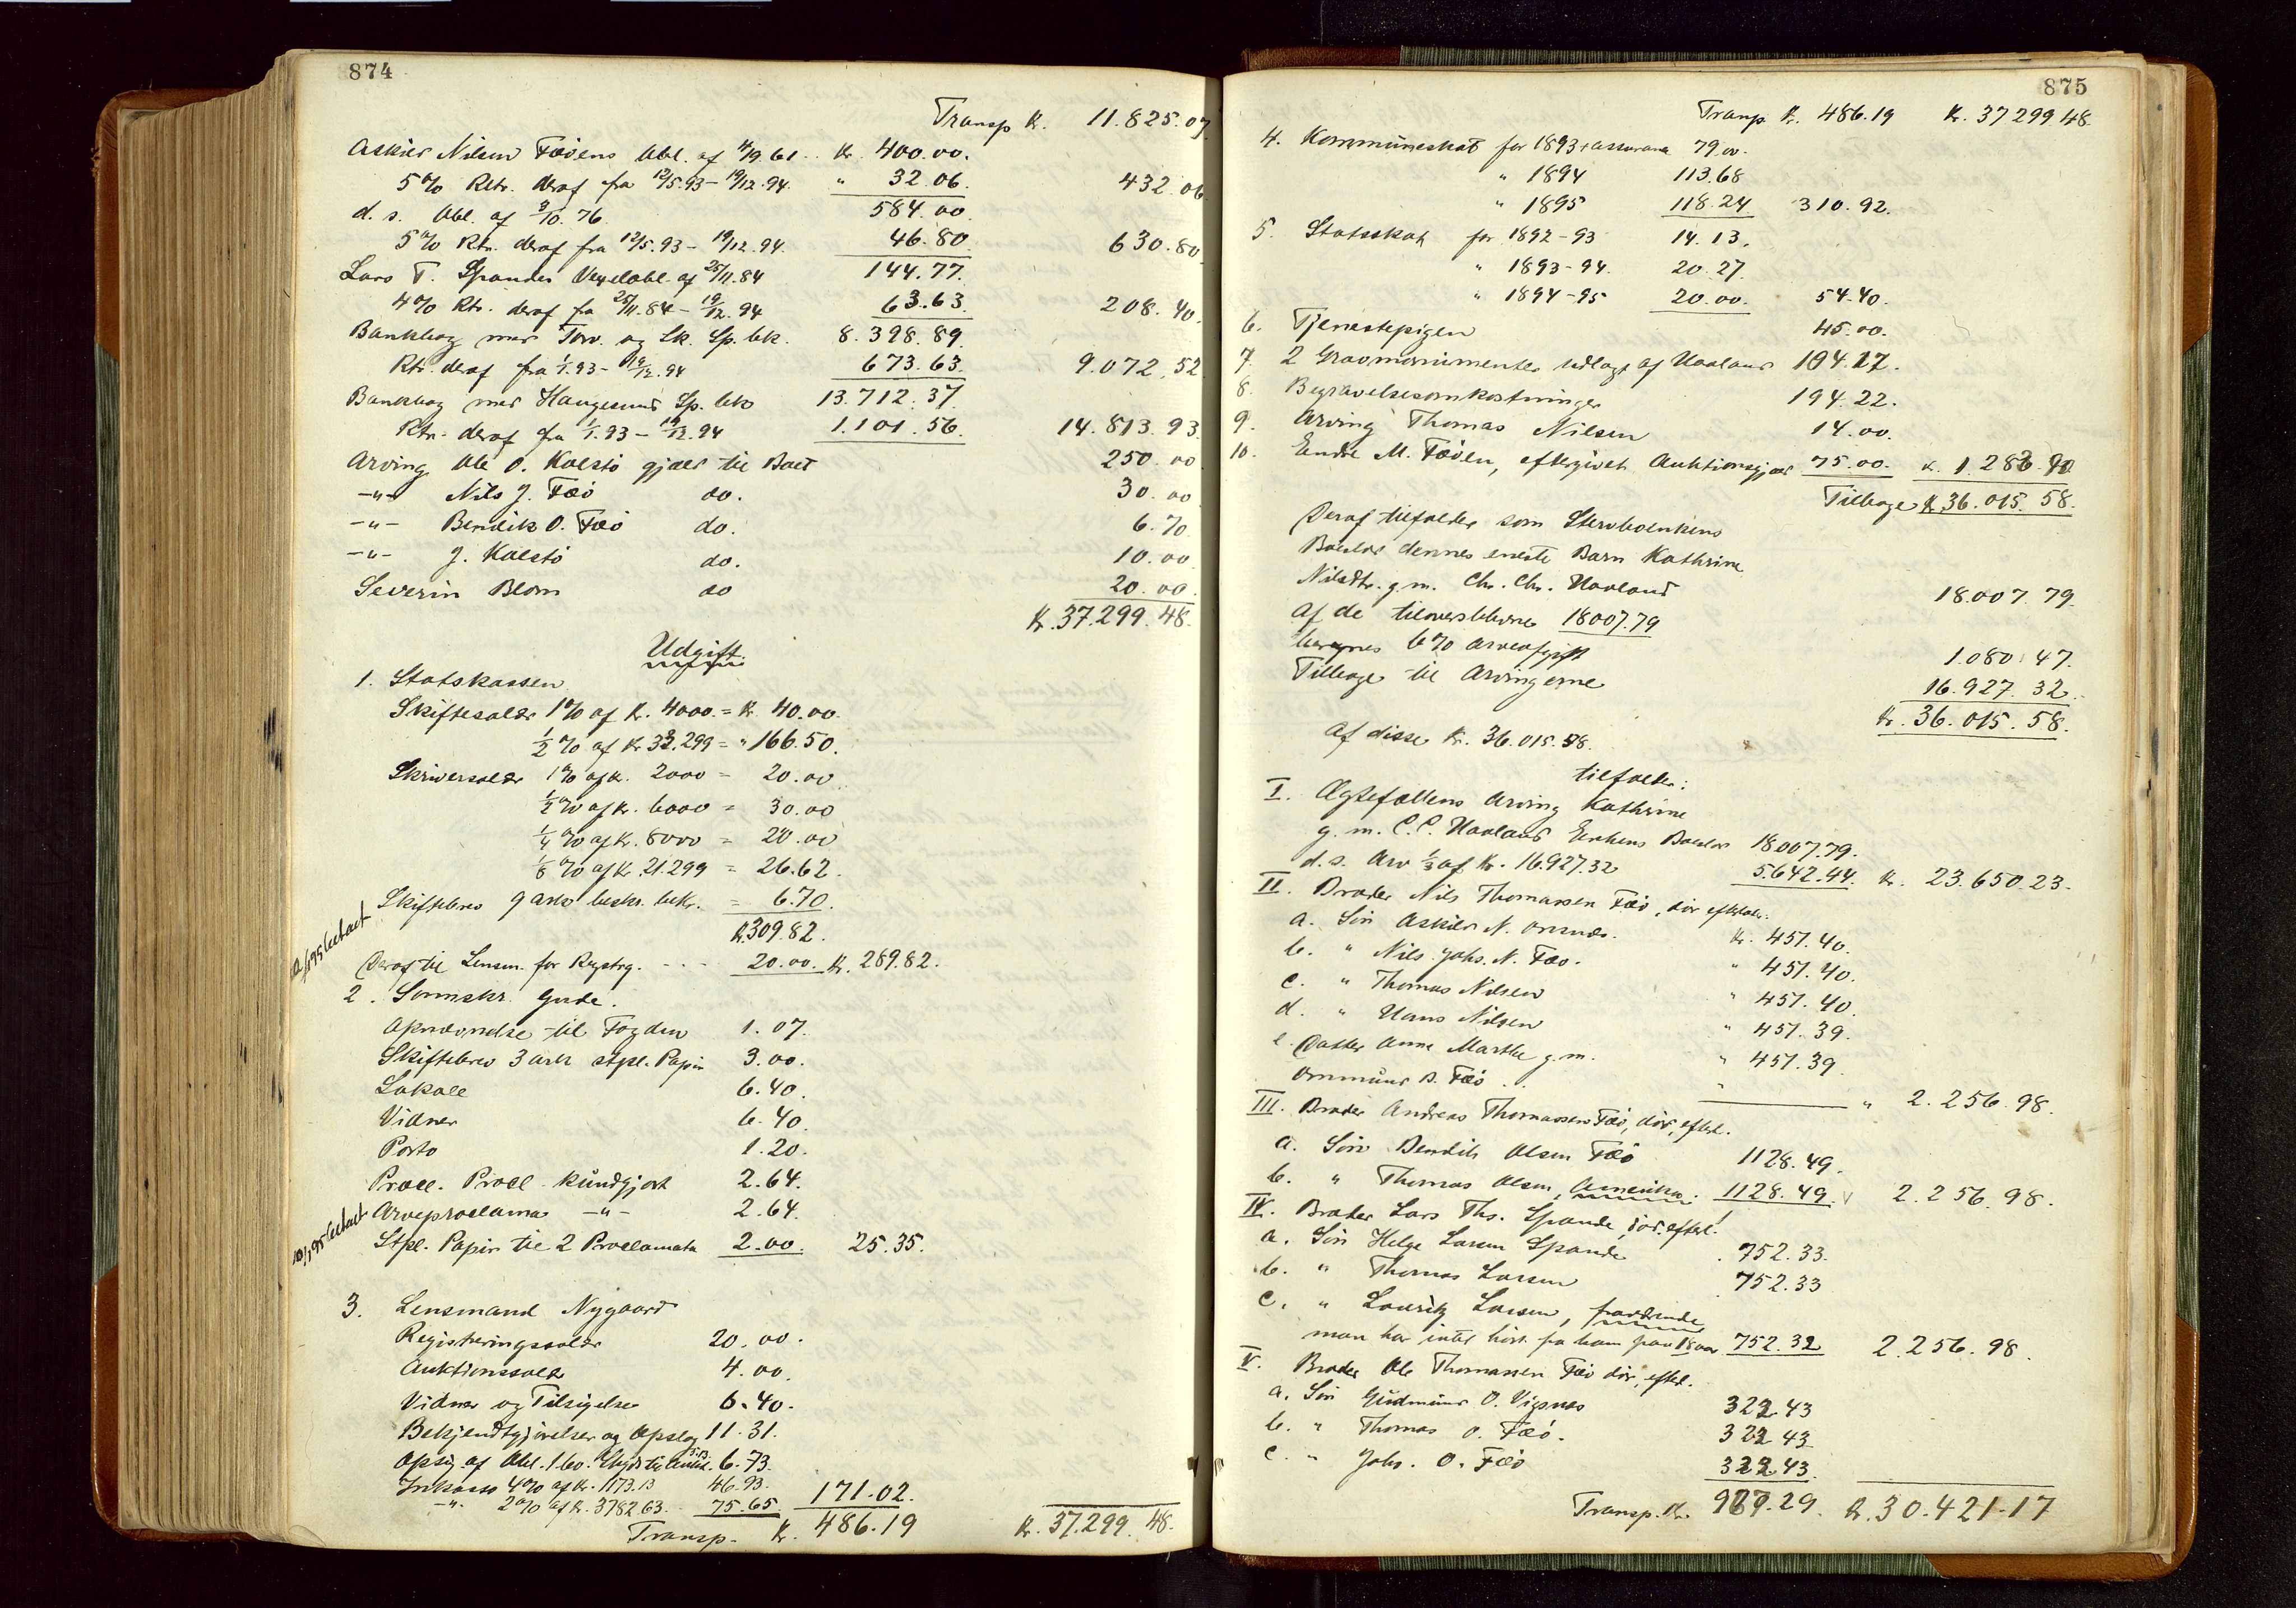 874
Transp Kr. 11.825.07
Askild Nilsen Føöens Obl. af 4/9.61.. Kr. 400.00.
5% Rtr. deraf fra 12/5.93 - 19/12.94. " 32.06. 432.06
d. s. Obl. af 3/10.76 584.00
5% Rtr. deraf fra 12/5.93 - 19/12.94. 46.80 630.80
Lars T. Spandes Vexelobl. af 25/11.84 144.77.
4% Rtr. deraf fra 25/11.84 - 19/12.94 63.63 208.40.
Bankbog med Torv. og Sk. Sp. bk. 8.398.89.
Rtr. deraf fra 1/1.93 - 19/12.94 673.63. 9.072.52
Bankbog med Haugesund Sp. bk 13.712.37
Rtr. deraf fra 1/1.93 - 19/12.94 1.101.56. 14.813.93
Arving Ole O. Kolstö gjæld til Boet 250.00
-"- Nils J. Føö do. 30.00
-"- Bendik O. Føö do. 6.70
-"- J. Kolstö do. 10.00
Severin Blom do 20.00.
Kr. 37.299.48.
Udgift.
1. Statskassen
Skiftesalær 1% af Kr. 4000. = Kr. 40.00.
1/2 % af Kr 33.299 = " 166.50.
Skriversalær 1% af kr. 2000 = 20.00
1/2 % af kr. 6000 = 30.00
1/4 % af kr. 8000 = 20.00
1/8 % af kr. 21.299 = 26.62.
Skiftebrev 9 ark beskr. bekr. = 6.70.
Kr. 309.82.
Deraf til Lensm. for Regstrg. - - - 20.00. Kr. 289.82.
2. Sorenskr. Gude.
Opnævnelse til Fogden 1.07.
Skiftebrev 3 ark stpl. Papir 3.00.
Lokale 6.40.
Vidner 6.40.
Porto 1.20.
Procl. Procl. kundgjort 2.64.
Arveproclama -"- 2.64.
Stpl. Papir til 2 Proclamata 2.00. 25.35.
3. Lensmand Nygaard
Registreringssalær 20.00.
Auktionssalær 4.00.
Vidner og Tilsigelse 6.40.
Bekjendtgjörelser og Opslag 11.31.
Opsig. af Obl. 1.60. 6.73.
Inkasso 4% af Kr. 1173.13 46.93.
-"- 2% af Kr. 3782.63. 75.65. 171.02.
Transp. Kr. 486.19 Kr. 37.299.48.
875
Transp. Kr. 486.19 Kr. 37 299 48.
4. Kommuneskat for 1893 + assurance 79.00.
" 1894 113.68
" 1895 118.24 310.92.
5. Statsskat for 1892-93 14.13.
" 1893-94. 20.27.
" 1894-95 20.00. 54.40.
6. Tjenestepigen 45.00.
7. 2 Gravmonumenter udlagt af Haaland 104.17.
8. Begravelsesomkostninger 194.22.
9. Arving Thomas Nilsen 14.00.
10. Endre M. Føöen, eftergivet Auktionsgjæld 75.00. Kr. 1.283.90
Tilbage Kr. 36.015.58.
Deraf tilfalder som Stervboenkens
Boeslod dennes eneste Barn Kathrine
Nilsdtr. g. m. Chr. Chr. Haaland 18.007.79.
Af de tiloversblevne 18007.79
beregnes 6% Arveafgift 1.080.47.
Tilbage til Arvingerne 16.927.32.
Kr. 36.015.58.
Af disse Kr. 36.015.58.
tilfalder:
I. Ægtefællens Arving Kathrine
g. m. C. C. Haaland Enkens Boeslod 18007.79.
d. s. Arv 1/3 af Kr. 16.927.32 5.642.44. Kr. 23.650.23.
II. Broder Nils Thomassen Føö, död efterl.:
a. Sön Askild N. Kr. 451.40.
b. " Nils Johs. N. Føö. " 451.40.
c. " Thomas Nilsen " 451.40.
d. " Hans Nilsen " 451.39.
e. Datter Anne Marthe g. m. " 451.39.
Ommund B. Føö . . " 2.256.98.
III. Broder Andreas Thomassen Føö, död, efterl.
a. Sön Bendik Olsen Føö 1128.49.
b. " Thomas Olsen, Amerika. 1128.49. 2.256.98.
IV. Broder Lars Ths. Spande, död, efterl.
a. Sön Helge Larsen Spande 752.33.
b. " Thomas Larsen 752.33
c. " Lauritz Larsen, fraværende,
man har intet hört fra ham paa 18 aar 752.32 2.256.98.
V. Broder Ole Thomassen Føö död, efterl.
a. Sön Gudmund O. Vigsnes 322.43
b. " Thomas O. Føö. 322 43
c. " Johs. O. Føö 322.43.
Transp. Kr. 967.29. Kr. 30.421.17